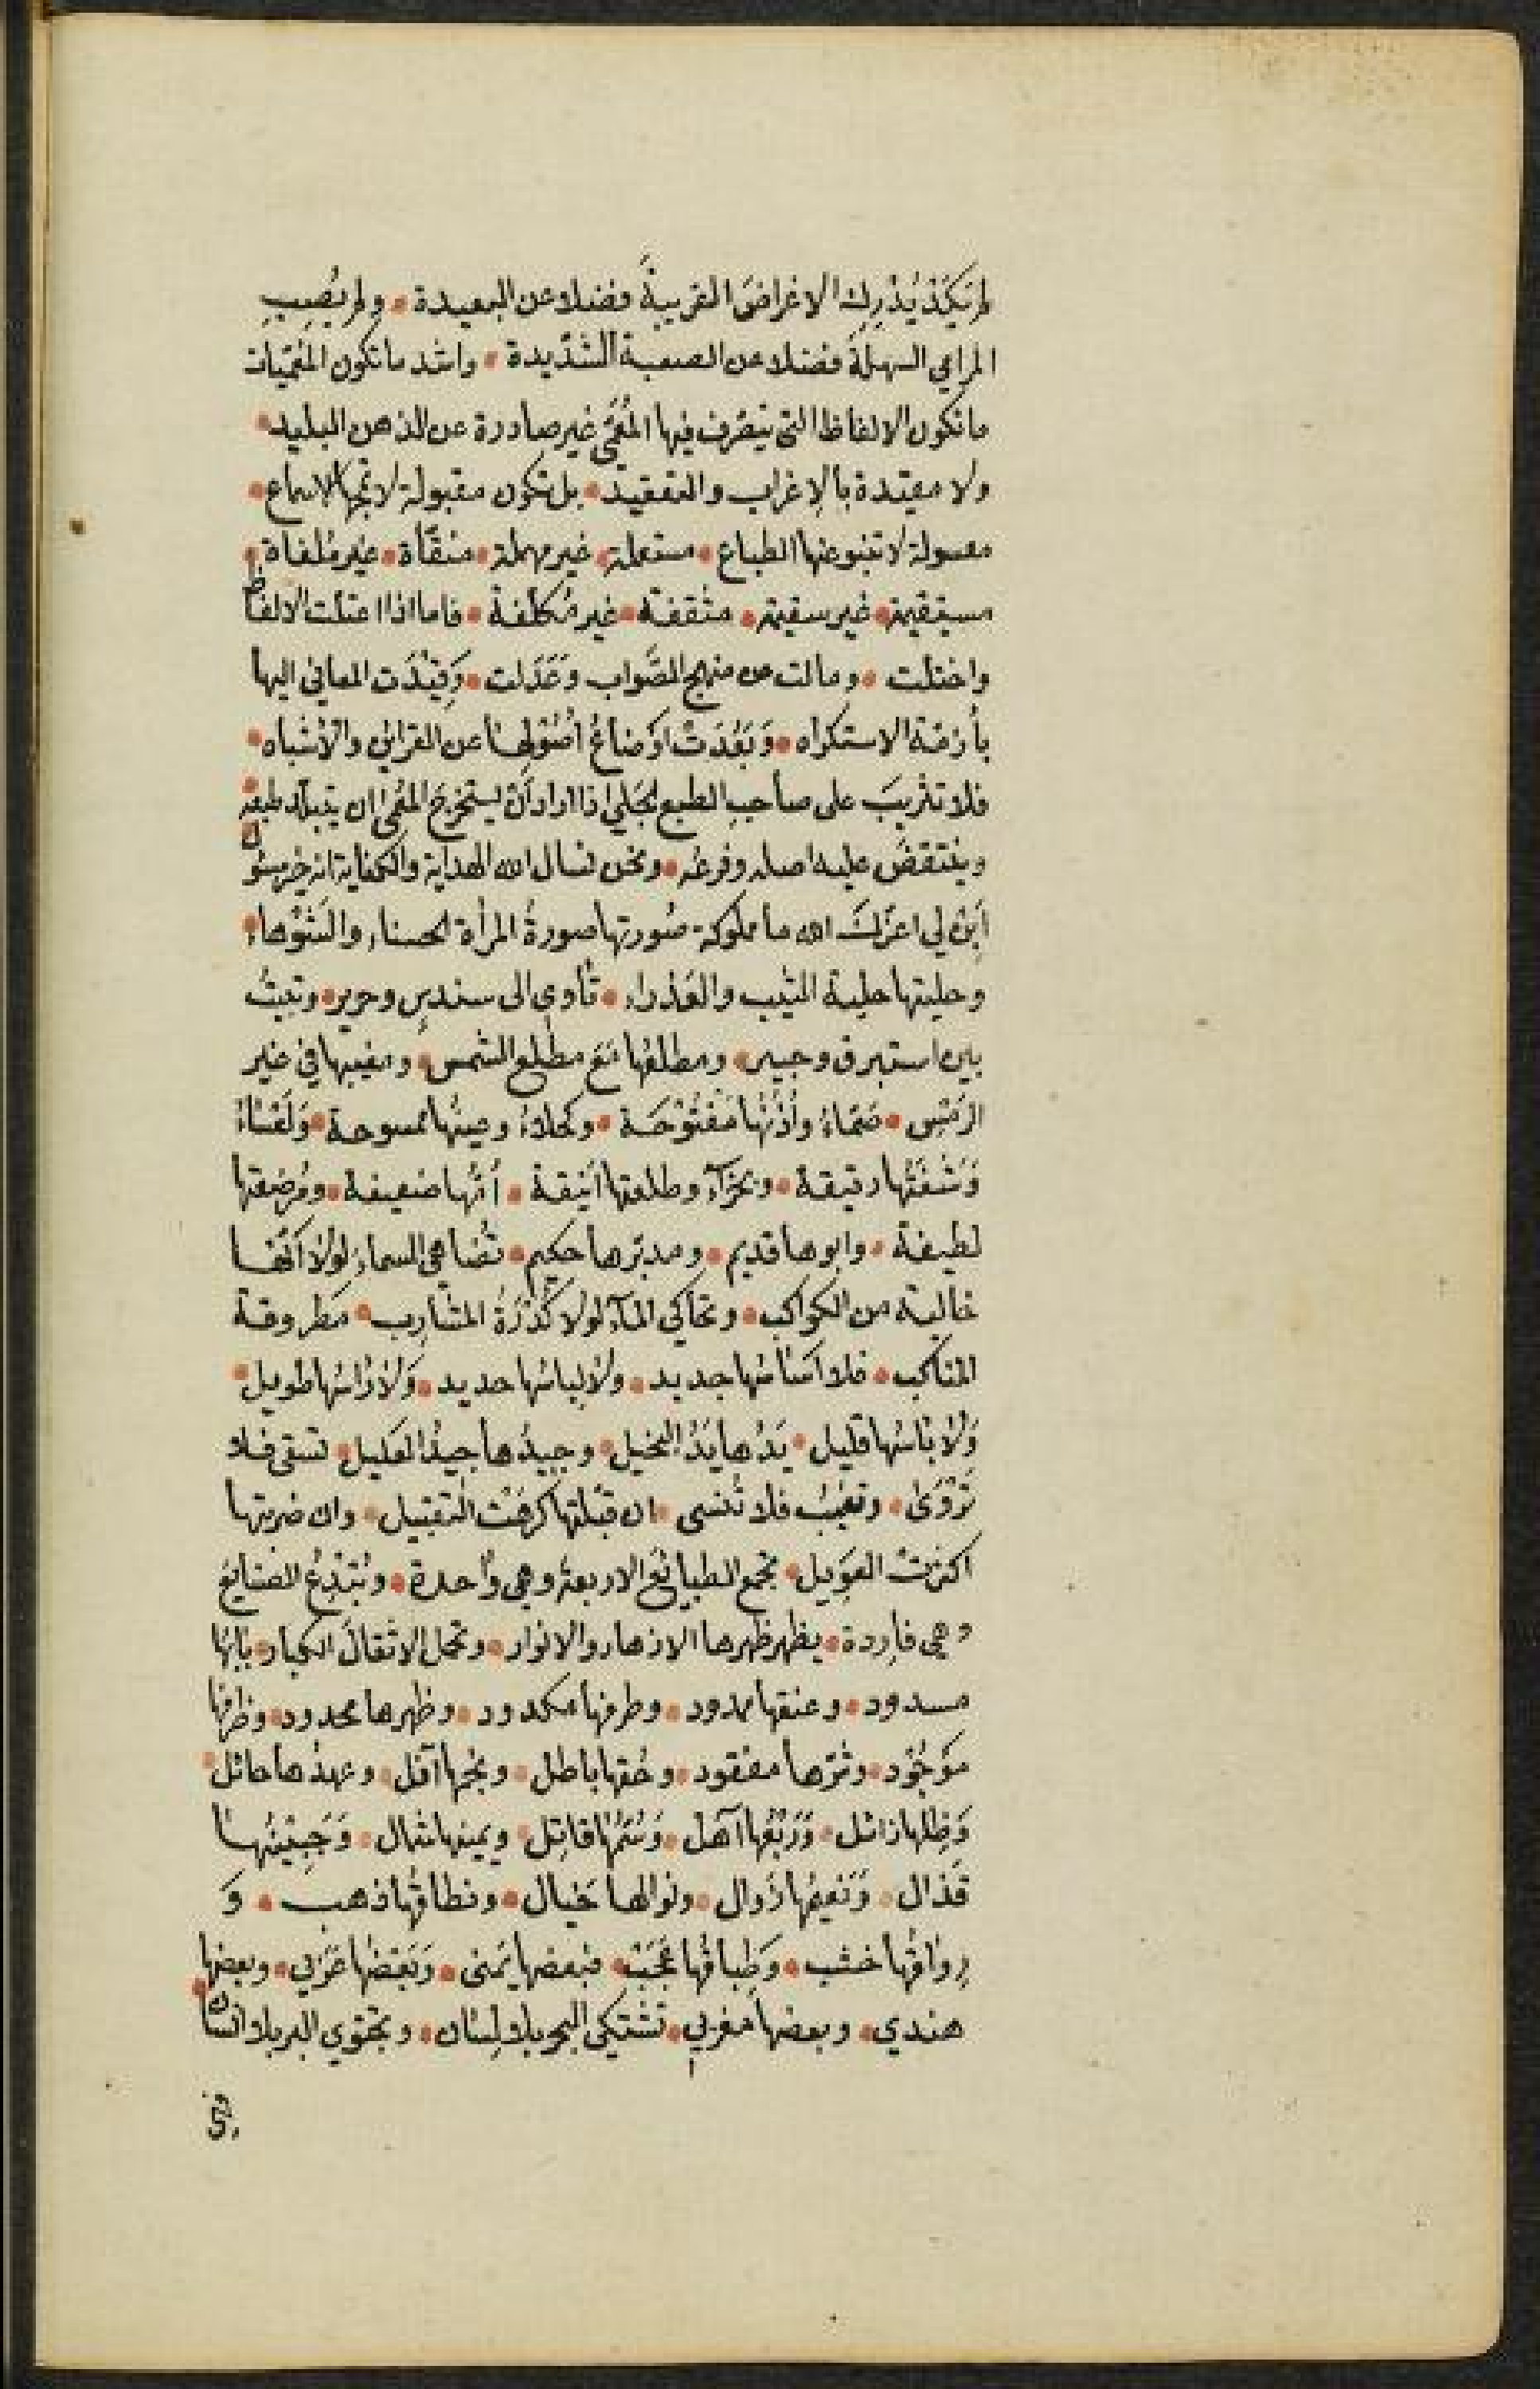 لم يَكَدْ يُدْرِك الاغراضَ القريبةَ فضلا عن البعيدة • ولم يُصِبِ
المرامي السهلةَ فضلا عن الصعبة الشديدة • واشد ما تكون المُعَمَّيات
ما تكون الالفاظ التي يتصرف فيها المُعَمِّي غير صادرة عن الذهن البليد •
ولا مقيّدة بالإغراب والتعقيد • بل تكون مقبولة لا تمجّها الاسماع •
معسولة لا تنبو عنها الطباع • مستعملة • غير مهملة • منقّاة • غير مُلغاة •
مستقيمة • غير سقيمة • مثقفة • غير مُكلَّفة • فاما اذا اعتلت الالفاظ
واختلت • ومالت عن منهج الصَّواب وعَدَلت • وَقيْدَت المعاني اليها
بأزمّة الاستكراه • وَبَعُدَتْ اوْضاعُ اُصُوْلِها عن القرائن والأشباه •
فلا تثريبَ على صاحب الطبع الجَلي اذا اراد اَنْ يستخرج المُعَمى ان يتبلّد طبعه •
وينتقض عليه اصله وفرعُه • ونحن نسال الله الهداية والكفاية انه خير مسئول
اَبِنْ لي اعزّكَ الله ما مملوكة صُورتها صورةُ المرأة الحسناء والشَوْهاء •
وحليتها حلية الثيب والعَذراء • تأوي الى سندس وحرير • وتبيتُ
بين استبرق وحبير • ومطلعُها مَعَ مطلع الشمس • ومغيبها في غير
الرَمْس • صَمّاءُ واُذُنُها مَفْتُوْحَة • وكحلاءُ وعينُها ممسوحة • وَلَعْسَاءُ
وَشَفَتُها رقيقة • وبَخْرَآءُ وطلعتها اَنيقة • اُمُّها ضعيفة • ومُرضِعَتها
لطيفة • وابوها قديم • ومدبّرها حكيم • تُضاهي السماء لوْلا اَنّها
خالية من الكواكب • وتحاكي المآء لولا كُدْرَةُ المشارب • مَطروقة
المناكب • فلا اَساسُها جديد • ولا لباسُها حديد • وَلا رَاسُها طويل •
وَلا بَاسُها قليل • يَدُها يَدُ البخيل • وجيدُها جيدُ العَليل • تسقى فلا
تَرْوَى • وتغيبُ فلا تُنسى • ان قبّلتها كرهَتْ التقبيل • وان ضربتها
اكثرتْ العَوِيل • تجمع الطبائعَ الاربعةَ وهي واحدة • وتُبْدِعُ الصنايعَ
وهي فاردة • يظهر ظهرها الازهار والانوار • وتحمل الاثقالَ الكبار • بابُها
مسدود • وعنقها ممدود • وطرفها مكدود • وظهرها محدود • وظرفها
مَوْجُوْد • وثمرها مفقود • وحُقها باطل • ونجمها آفل • وعهدُها حائل •
وَظِلها زائل • وَرَبْعُها آهل • وَسُمّها قاتِل • ويمينها شمال • وَجَبِيْنُها
قَذال • وَنَعيمُها زَوال • ونوالها خَيال • ونطاقُها ذهب • وَ
رِواقُها خشب • وَطِباقُها عَجَب • فبعضها يَمَنى • وَبَعْضُها عَرَبي • وبعضها
هندي • وبعضها مغربي • تشتكي البحر بلا لسان • وتحتوي البر بلا انسان •